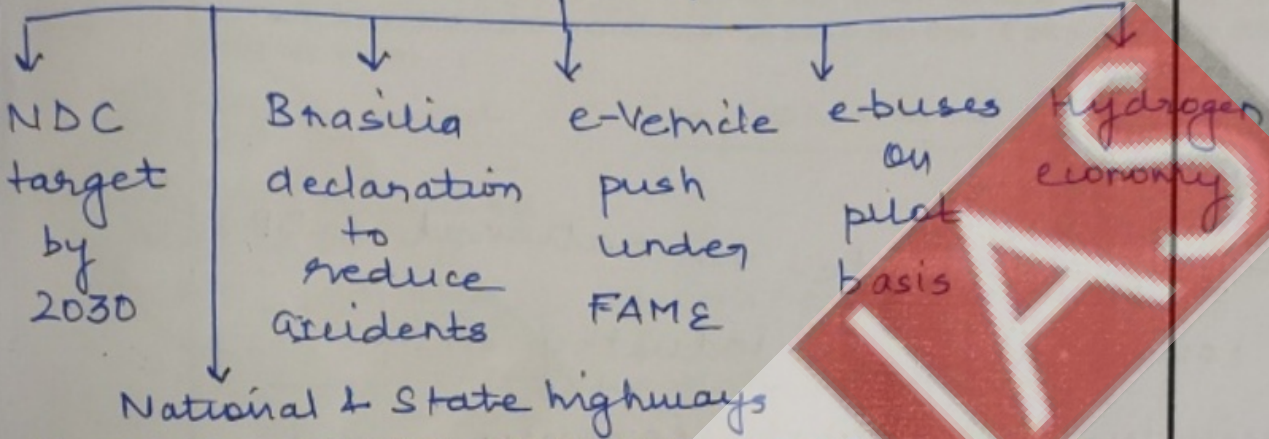 NDC
target
by
2030
Brasilia
declaration
to
reduce
accidents
e-Vehicle
push
under
FAME
e-buses
on
pilot
basis
Hydrogen
economy
National & State highways
IAS